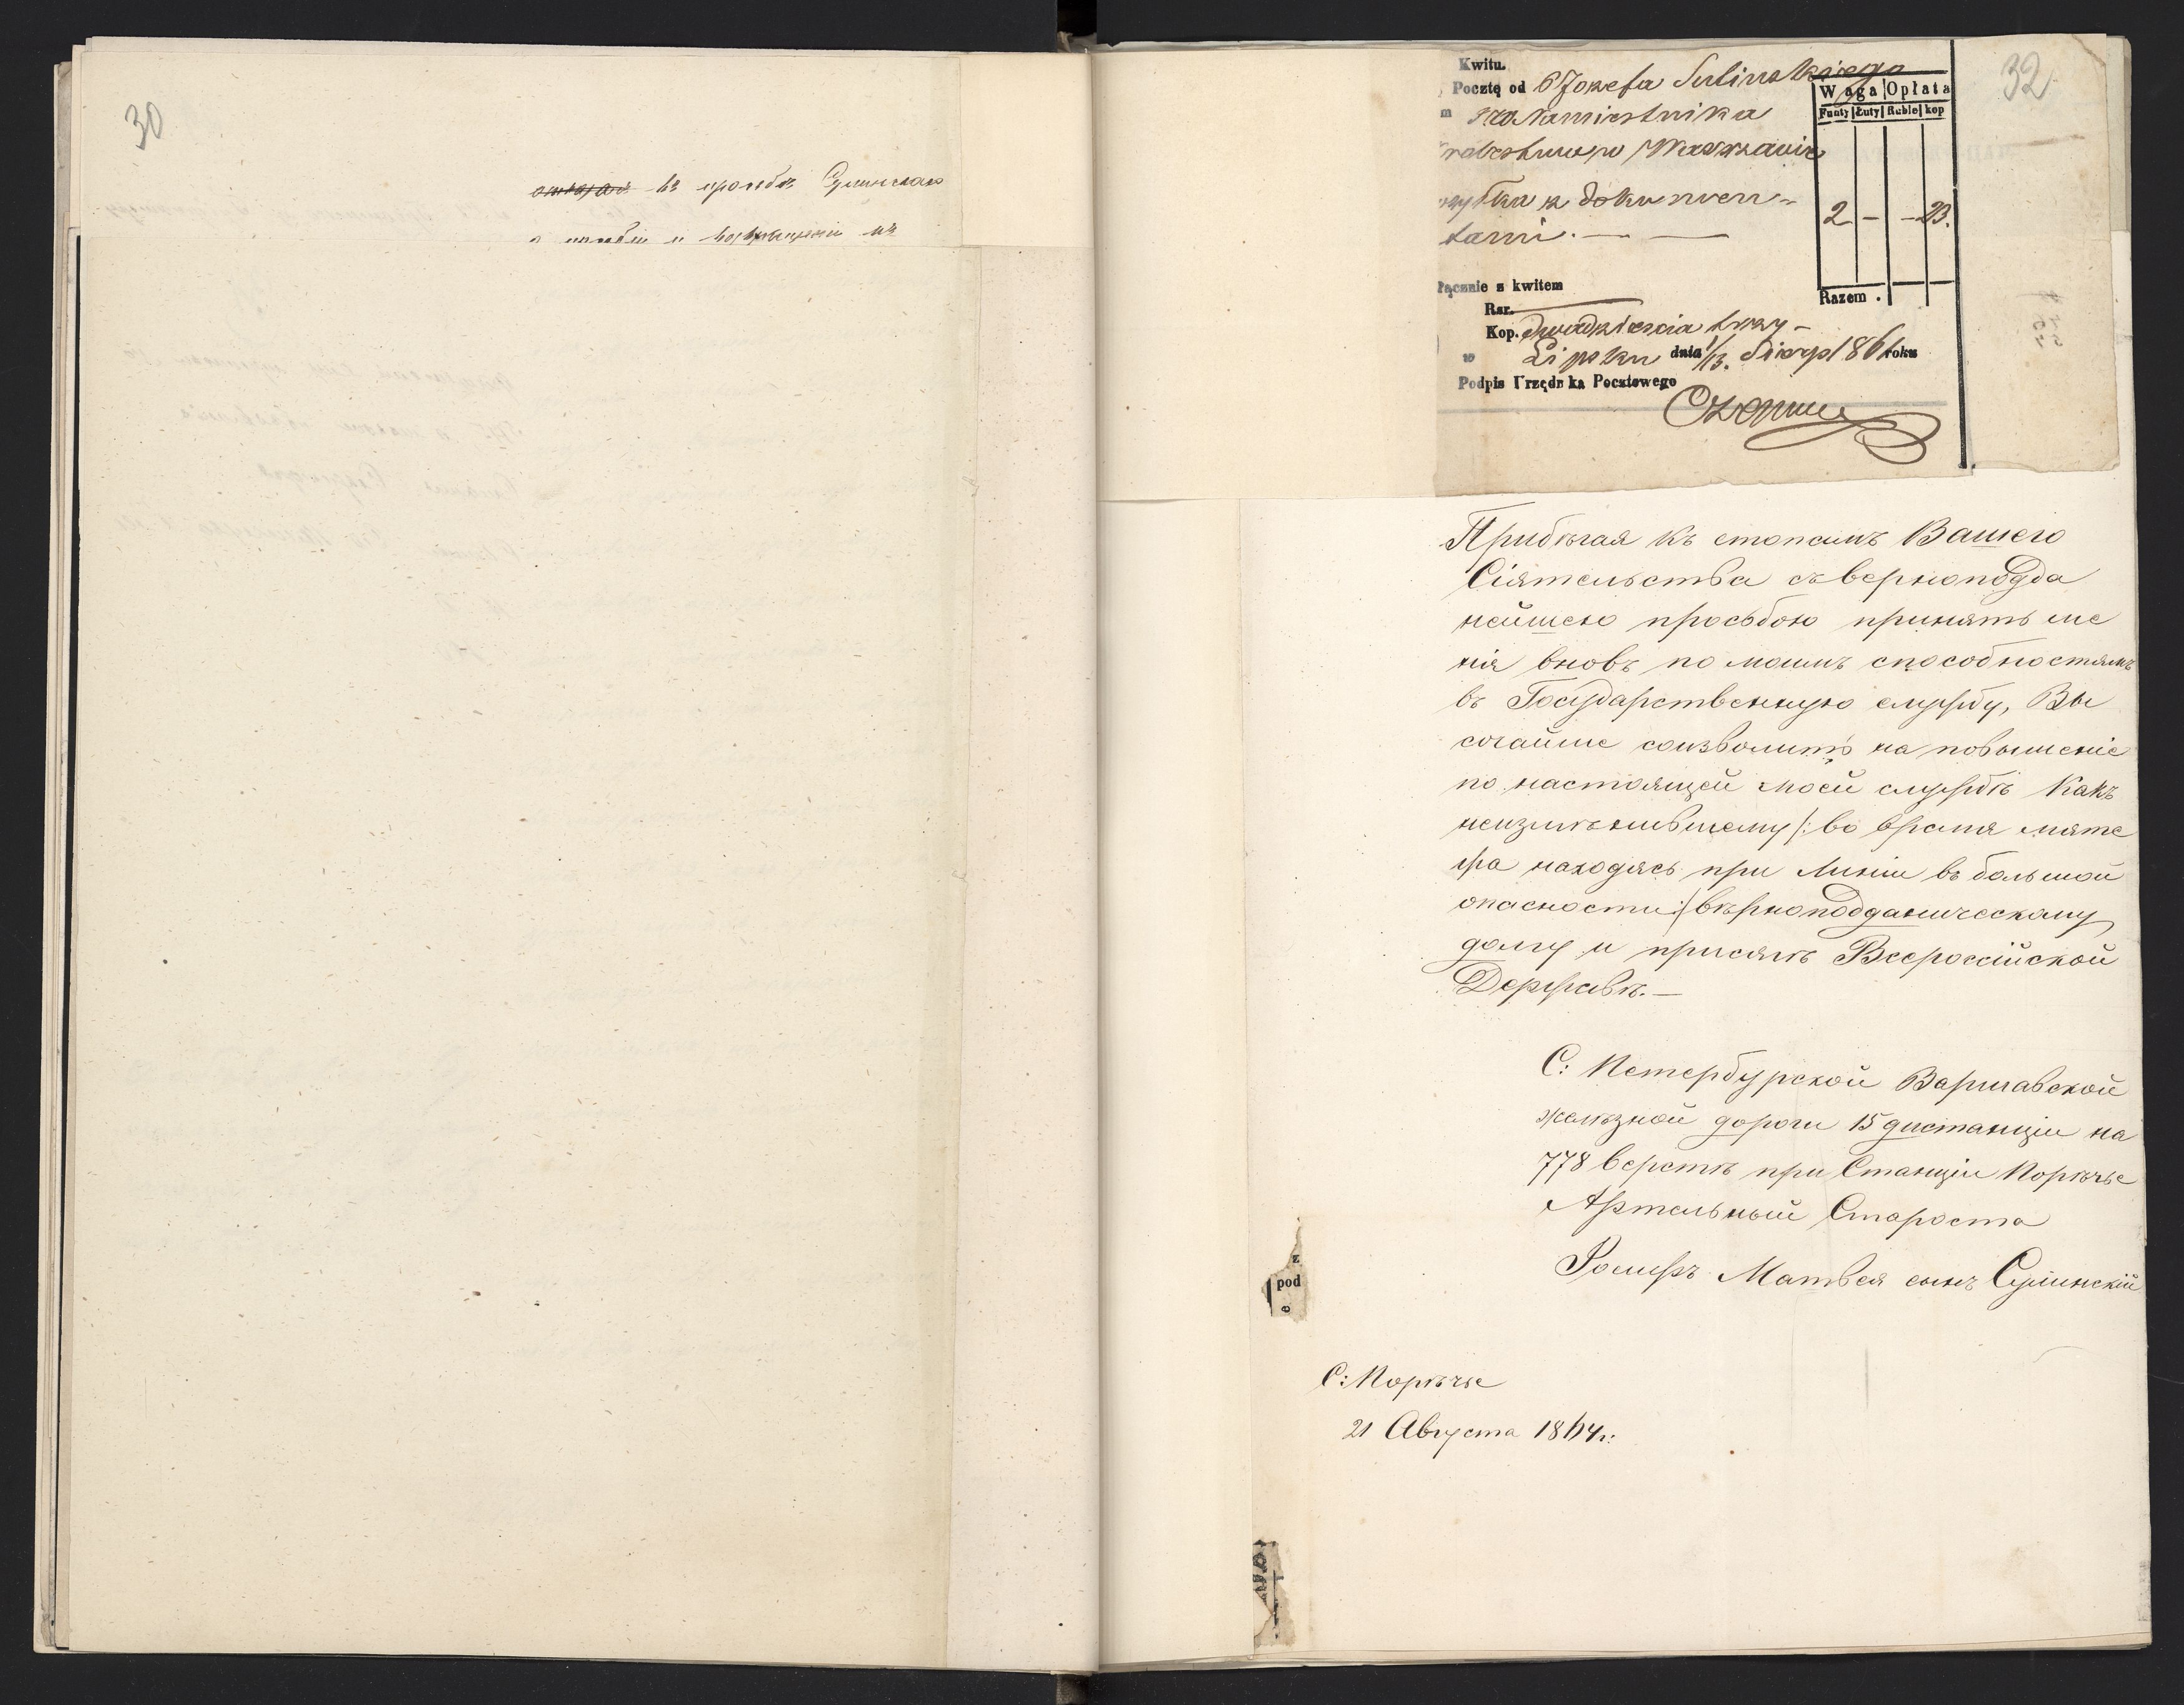 30
въ просьбѣ Сулинскаго
о пособіи и возвращеніи
32
Kwitu.
Pocztę od Józefa Sulinskiego
Namiestnika
Warszawie
dokumen-
tami. — —
Waga | Opłata
Funty | Łuty | Ruble | kop
2 — — 23.
Razem .
łącznie z kwitem
Rsr.
Kop. dwadzieścia trzy –
w Lipsku dnia 1/13. Sierp 186 roku
Podpis Urzędnika Pocztowego
Прибѣгая къ стопамъ Вашего
Сіятельства съ вернопода
нейшею просьбою принять ме
ня вновь по моимъ способностямъ
въ Государственную службу, Вы
сочайше соизволить на повышеніе
по настоящей моей службѣ Какъ
неизмѣнившему /: во время мяте
жа находясь при Линіи въ большой
опасности :/ вѣрноподданическому
долгу и присягѣ Всероссійской
Державѣ. —
С: Петербурской Варшавской
желѣзной дороги 15 дистанціи на
778 верстѣ при Станціи Порѣчье
Артельный Староста
Матвея сынъ Сулинскій
z
pod
e
С: Порѣчье
21 Августа 1864 г: